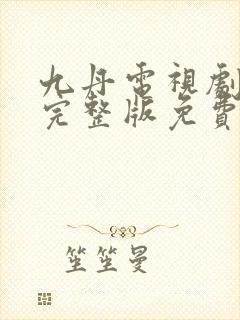 九丹電視劇
完整版免費
笙笙曼